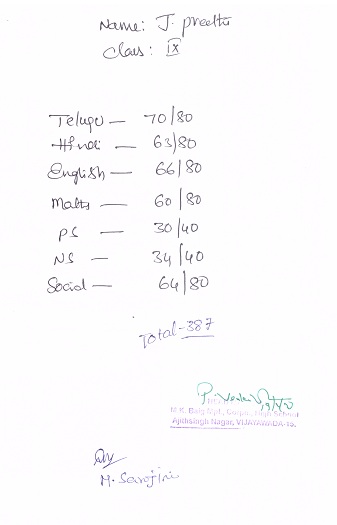 Name: J. preethi
Class: IX
Telugu — 70/80
Hindi — 63/80
English — 66/80
Maths — 60/80
PS — 30/40
NS — 34/40
Social — 64/80
Total-387
M.K. Baig Mpl., Corpn., High School
Ajithsingh Nagar, VIJAYAWADA-15.
M. Sarojini